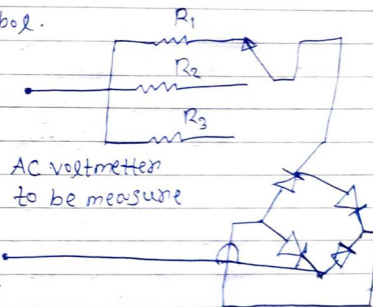 bol.
R1
R2
R3
AC voltmetter
to be measure